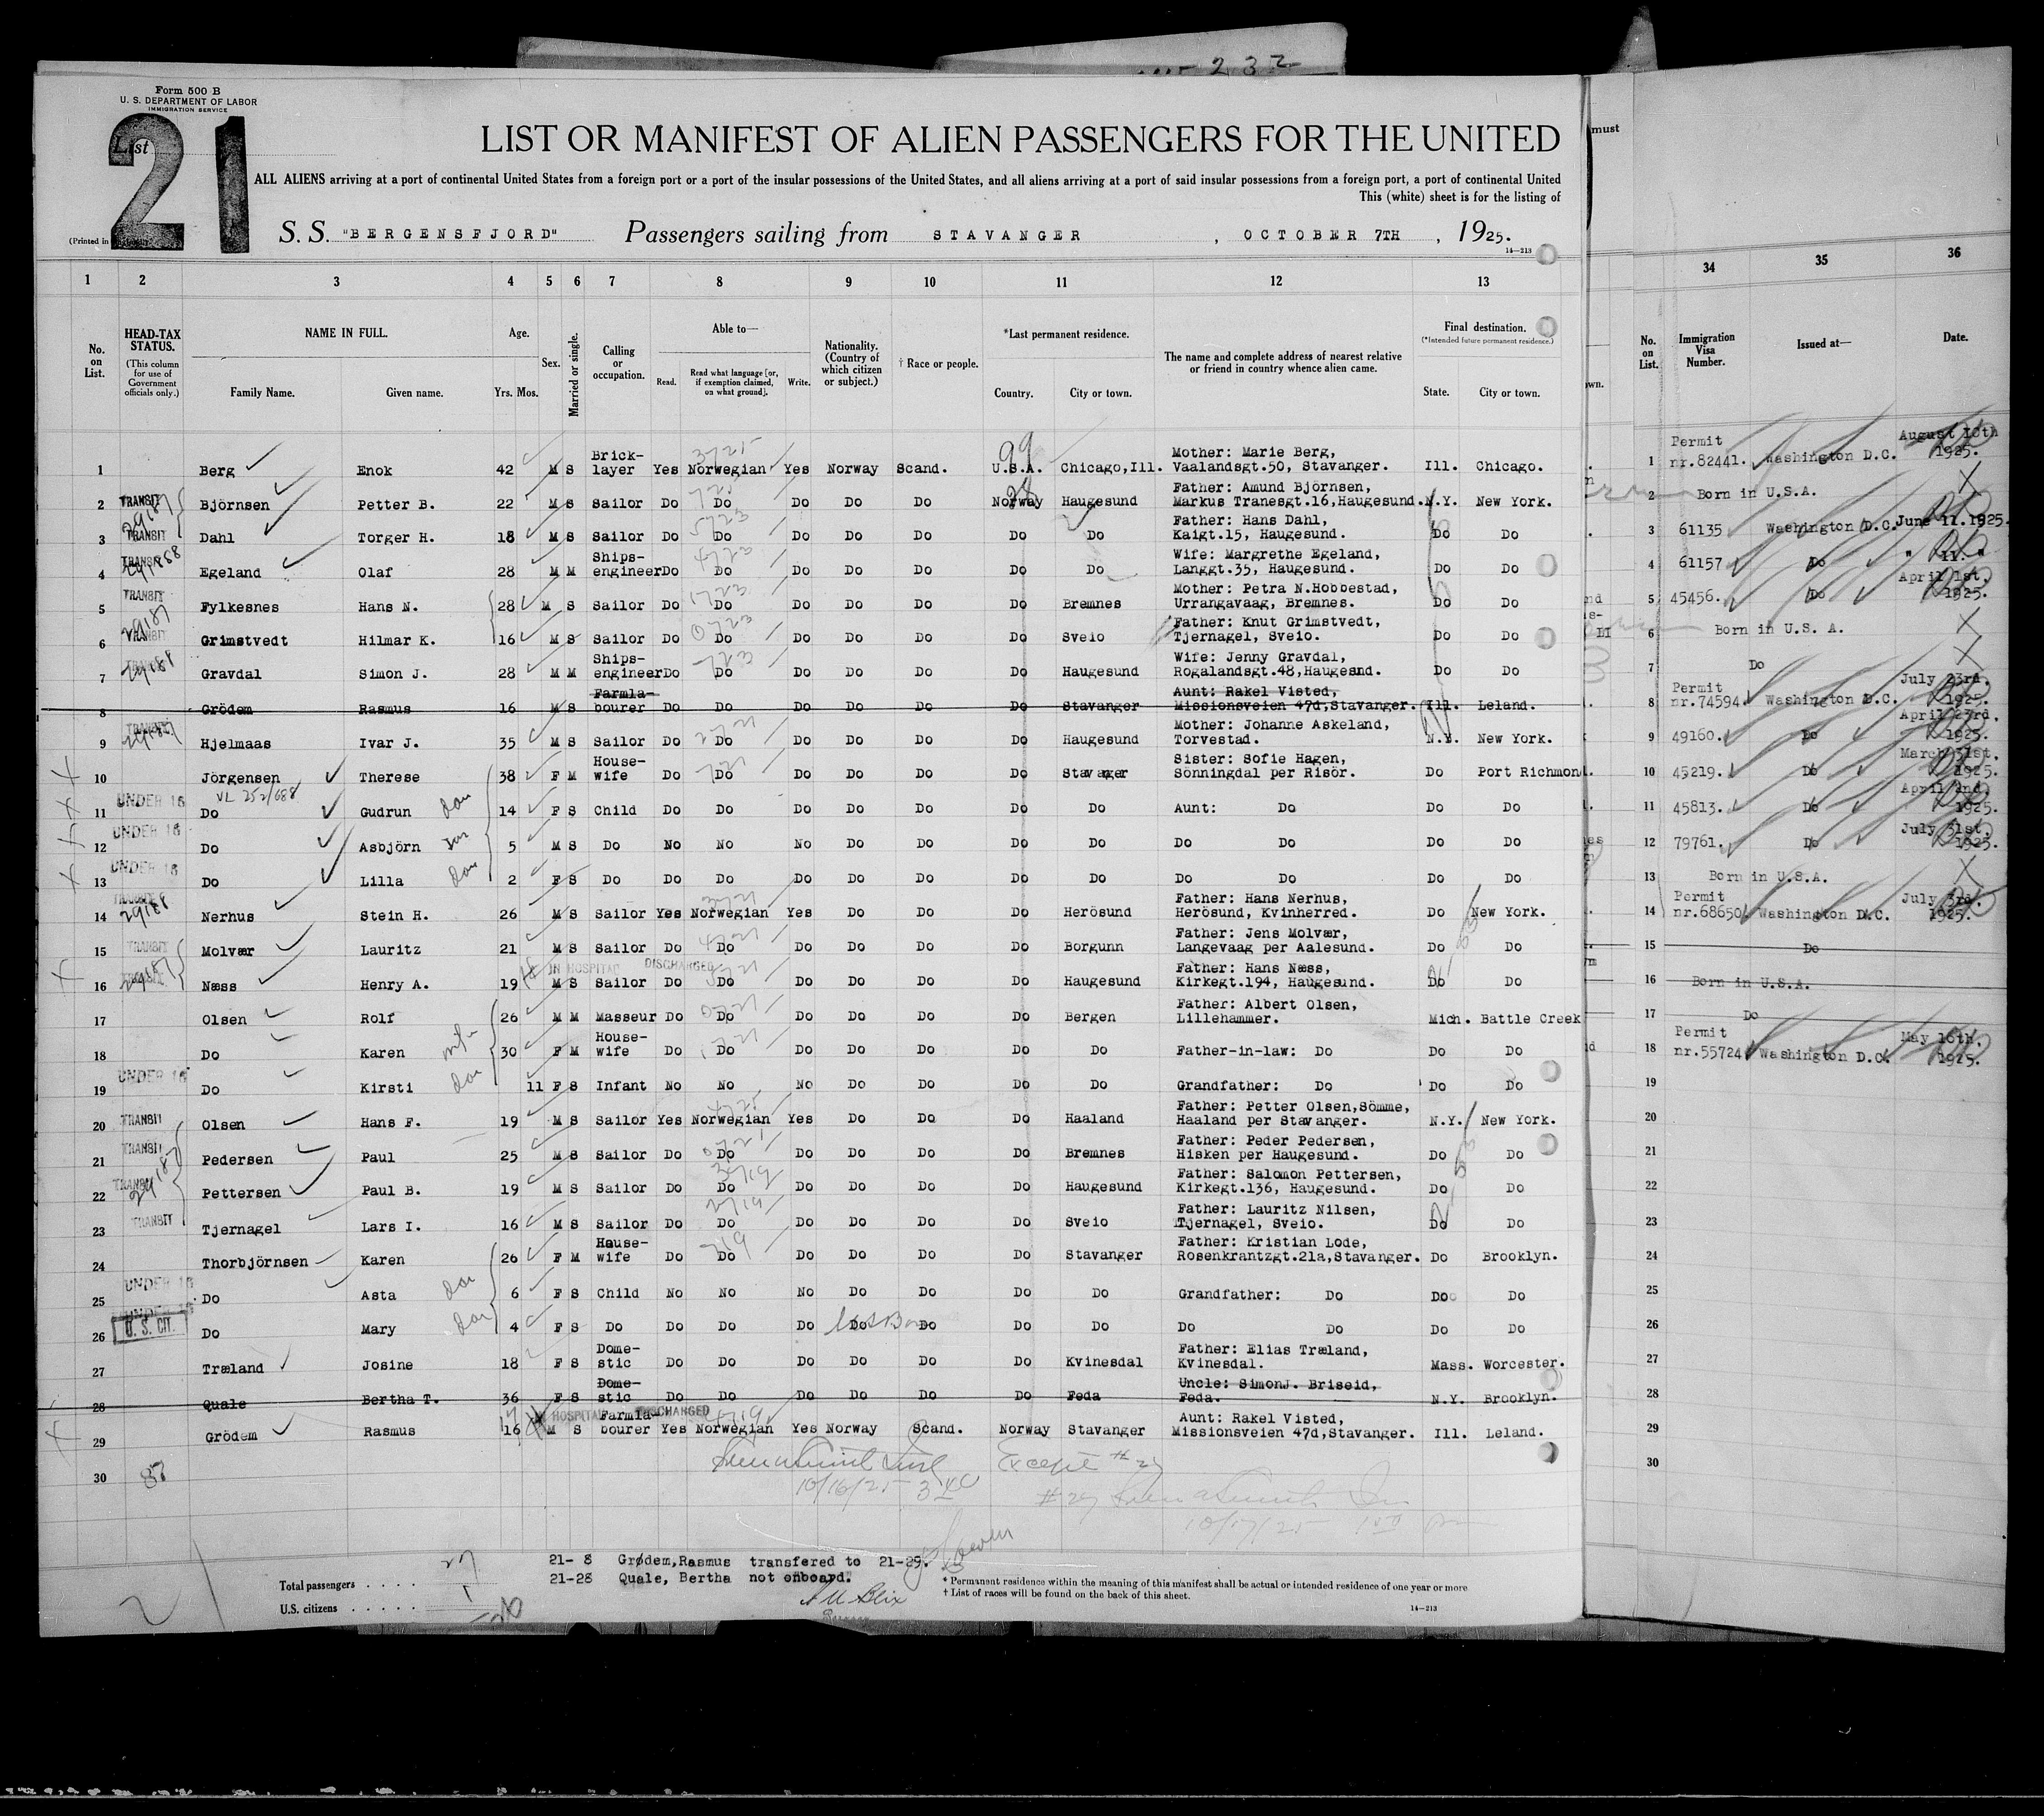 232
Form 500 B
U. S. DEPARTMENT OF LABOR
IMMIGRATION SERVICE
List 21
LIST OR MANIFEST OF ALIEN PASSENGERS FOR THE UNITED
ALL ALIENS arriving at a port of continental United States from a foreign port or a port of the insular possessions of the United States, and all aliens arriving at a port of said insular possessions from a foreign port, a port of continental United
This (white) sheet is for the listing of
(Printed in
S. S. "BERGENSFJORD" Passengers sailing from STAVANGER, OCTOBER 7TH, 1925.
14—213
must
1 2 3 4 5 6 7 8 9 10 11 12 13
No. on List. HEAD-TAX STATUS. (This column for use of Government officials only.) NAME IN FULL. Family Name. Given name. Age. Yrs. Mos. Sex. Married or single. Calling or occupation. Able to— Read. Read what language [or, if exemption claimed, on what ground]. Write. Nationality. (Country of which citizen or subject.) † Race or people. *Last permanent residence. Country. City or town. The name and complete address of nearest relative or friend in country whence alien came. Final destination. (*Intended future permanent residence.) State. City or town.
1 Berg Enok 42 M S Brick-layer Yes Norwegian Yes Norway Scand. U.S.A. Chicago,Ill. Mother: Marie Berg, Vaalandsgt.50, Stavanger. Ill. Chicago.
2 TRANSIT Björnsen Petter B. 22 M S Sailor Do Do Do Do Do Norway Haugesund Father: Amund Björnsen, Markus Tranesgt.16,Haugesund. N.Y. New York.
3 TRANSIT Dahl Torger H. 18 M S Sailor Do Do Do Do Do Do Do Father: Hans Dahl, Kaigt.15, Haugesund. Do Do
4 TRANSIT Egeland Olaf 28 M M Ships-engineer Do Do Do Do Do Do Do Wife: Margrethe Egeland, Langgt.35, Haugesund. Do Do
5 TRANSIT Fylkesnes Hans N. 28 M S Sailor Do Do Do Do Do Do Bremnes Mother: Petra N.Hobbestad, Urrangavaag, Bremnes. Do Do
6 TRANSIT Grimstvedt Hilmar K. 16 M S Sailor Do Do Do Do Do Do Sveio Father: Knut Grimstvedt, Tjernagel, Sveio. Do Do
7 Gravdal Simon J. 28 M M Ships-engineer Do Do Do Do Do Do Haugesund Wife: Jenny Gravdal, Rogalandsgt.48,Haugesnd. Do Do
8 Grödem Rasmus 16 M S Farmla-bourer Do Do Do Do Do Do Stavanger Aunt: Rakel Visted, Missionsveien 47d,Stavanger. Ill. Leland.
9 TRANSIT Hjelmaas Ivar J. 35 M S Sailor Do Do Do Do Do Do Haugesund Mother: Johanne Askeland, Torvestad. N.Y. New York.
10 Jörgensen Therese 38 F M House-wife Do Do Do Do Do Do Stavanger Sister: Sofie Hagen, Sönningdal per Risör. Do Port Richmond.
VL 252/688
11 UNDER 16 Do Gudrun dau 14 F S Child Do Do Do Do Do Do Do Aunt: Do Do Do
12 UNDER 16 Do Asbjörn son 5 M S Do No No No Do Do Do Do Do Do Do Do
13 UNDER 16 Do Lilla dau 2 F S Do Do Do Do Do Do Do Do Do Do Do Do
14 29188 Nerhus Stein H. 26 M S Sailor Yes Norwegian Yes Do Do Do Herösund Father: Hans Nerhus, Herösund, Kvinherred. Do New York.
15 TRANSIT Molvær Lauritz 21 M S Sailor Do Do Do Do Do Do Borgunn Father: Jens Molvær, Langevaag per Aalesund. Do Do
IN HOSPITAL DISCHARGED
16 29187 Næss Henry A. 19 M S Sailor Do Do Do Do Do Do Haugesund Father: Hans Næss, Kirkegt.194, Haugesund. Do Do
17 Olsen Rolf 26 M M Masseur Do Do Do Do Do Do Bergen Father: Albert Olsen, Lillehammer. Mich. Battle Creek
18 Do Karen wife 30 F M House-wife Do Do Do Do Do Do Do Father-in-law: Do Do Do
19 UNDER 16 Do Kirsti dau 11 F S Infant No No No Do Do Do Do Grandfather: Do Do Do
20 TRANSIT Olsen Hans F. 19 M S Sailor Yes Norwegian Yes Do Do Do Haaland Father: Petter Olsen,Sömme, Haaland per Stavanger. N.Y. New York.
21 TRANSIT Pedersen Paul 25 M S Sailor Do Do Do Do Do Do Bremnes Father: Peder Pedersen, Hisken per Haugesund. Do Do
22 TRANSIT Pettersen Paul B. 19 M S Sailor Do Do Do Do Do Do Haugesund Father: Salomon Pettersen, Kirkegt.136, Haugesund. Do Do
23 TRANSIT Tjernagel Lars I. 16 M S Sailor Do Do Do Do Do Do Sveio Father: Lauritz Nilsen, Tjernagel, Sveio. Do Do
24 Thorbjörnsen Karen 26 F M House-wife Do Do Do Do Do Do Stavanger Father: Kristian Lode, Rosenkrantzgt.21a,Stavanger. Do Brooklyn.
25 UNDER 16 Do Asta dau 6 F S Child No No No Do Do Do Do Grandfather: Do Do Do
26 UNDER 16 U. S. CIT. Do Mary dau 4 F S Do Do Do Do Do Do Do Do Do Do Do Do
27 Træland Josine 18 F S Dome-stic Do Do Do Do Do Do Kvinesdal Father: Elias Træland, Kvinesdal. Mass. Worcester.
28 Quale Bertha T. 36 F S Dome-stic Do Do Do Do Do Do Feda Uncle: SimonJ. Briseid, Feda. N.Y. Brooklyn.
HOSPITAL DISCHARGED
29 Grödem Rasmus 16 M S Farmla-bourer Yes Norwegian Yes Norway Scand. Norway Stavanger Aunt: Rakel Visted, Missionsveien 47d,Stavanger. Ill. Leland.
30
Except #29
10/16/25
#29
10/17/25
21- 8 Grødem,Rasmus transfered to 21-29.
21-28 Quale, Bertha not onboard.
Total passengers 27
U.S. citizens 1
* Permanent residence within the meaning of this manifest shall be actual or intended residence of one year or more
† List of races will be found on the back of this sheet.
14—213
34 35 36
No. on List. Immigration Visa Number. Issued at— Date.
1 Permit nr.82441. Washington D.C. August 10th 1925.
2 Born in U.S.A.
3 61135 Washington D.C. June 11.1925.
4 61157 Do " 11. "
5 45456. Do April 1st. 1925.
6 Born in U.S. A.
7 Do
8 Permit nr.74594 Washington D.C. July 23rd. 1925.
9 49160. Do April 23rd. 1925.
10 45219. Do March 31st. 1925.
11 45813. Do April 2nd. 1925.
12 79761. Do July 31st. 1925.
13 Born in U.S.A.
14 Permit nr.68650. Washington D.C. July 3rd. 1925.
15 Do
16 Born in U.S.A.
17 Do
18 Permit nr.55724 Washington D.C. May 16th. 1925.
19
20
21
22
23
24
25
26
27
28
29
30